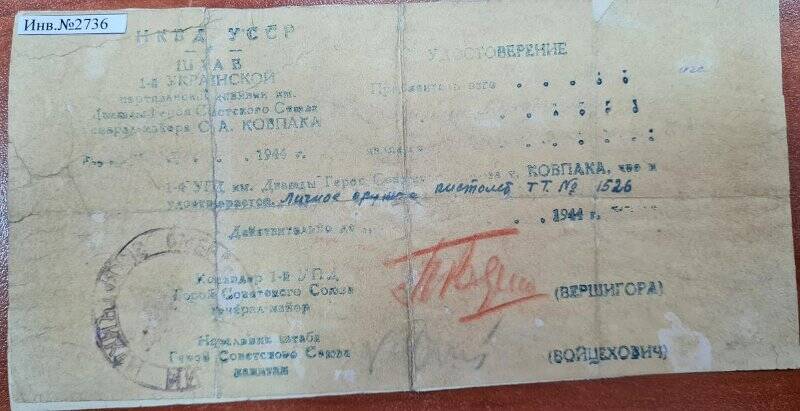 Инв.№2736
НКВД УССР
ШТАБ
1-й УКРАИНСКОЙ
партизанской дивизии им.
Дважды Героя Советского Союза
генерал-майора С. А. КОВПАКА
1944 г.
УДОСТОВЕРЕНИЕ
1-й УПД им. Дважды Героя КОВПАКА, что и
удостоверяется. Личное оружие пистолет ТТ. № 1526
Действительно до 1944 г.
Командир 1-й УПД
Герой Советского Союза
генерал-майор
(ВЕРШИГОРА)
Начальник штаба
Герой Советского Союза
капитан
(ВОЙЦЕХОВИЧ)